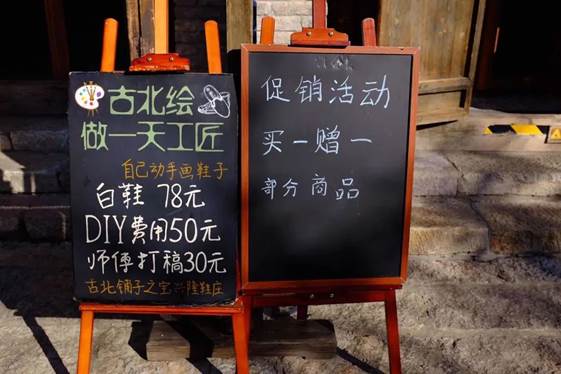 古北绘
做一天工匠
自己动手画鞋子
白鞋 78元
DIY费用50元
师傅打稿30元
古北铺子之宝兴隆鞋庄
促销活动
买一赠一
部分商品